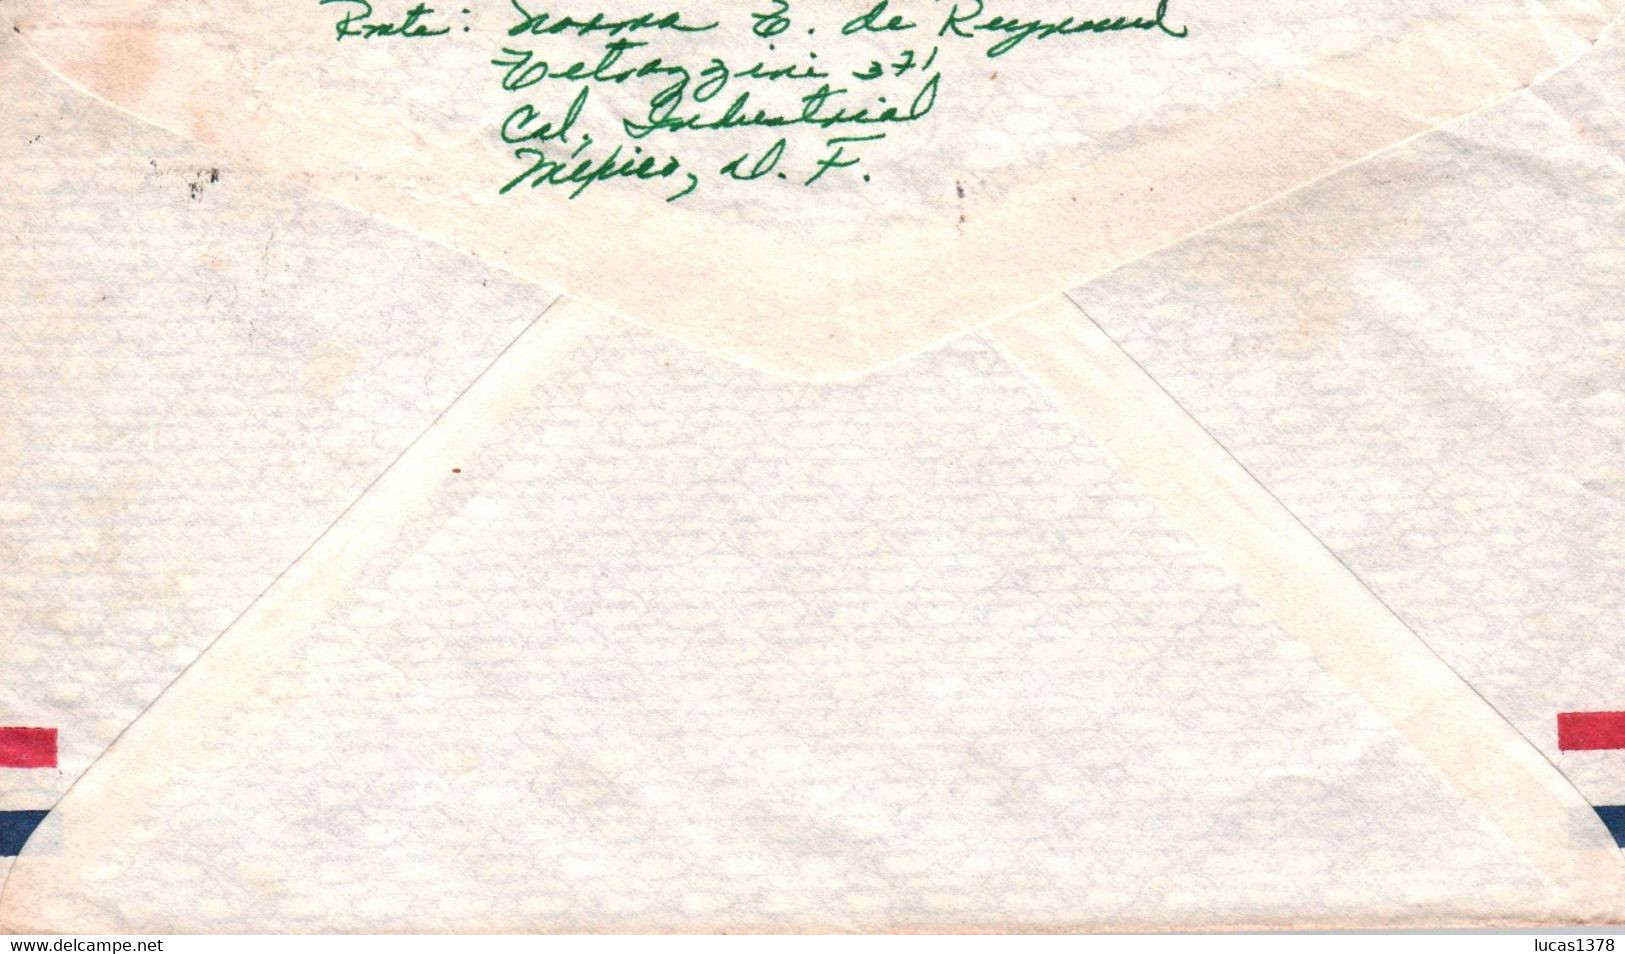 Rmte: Norma E. de Reynaud
Tetrazzini 371
Col. Industrial
México, D. F.
www.delcampe.net
lucas1378